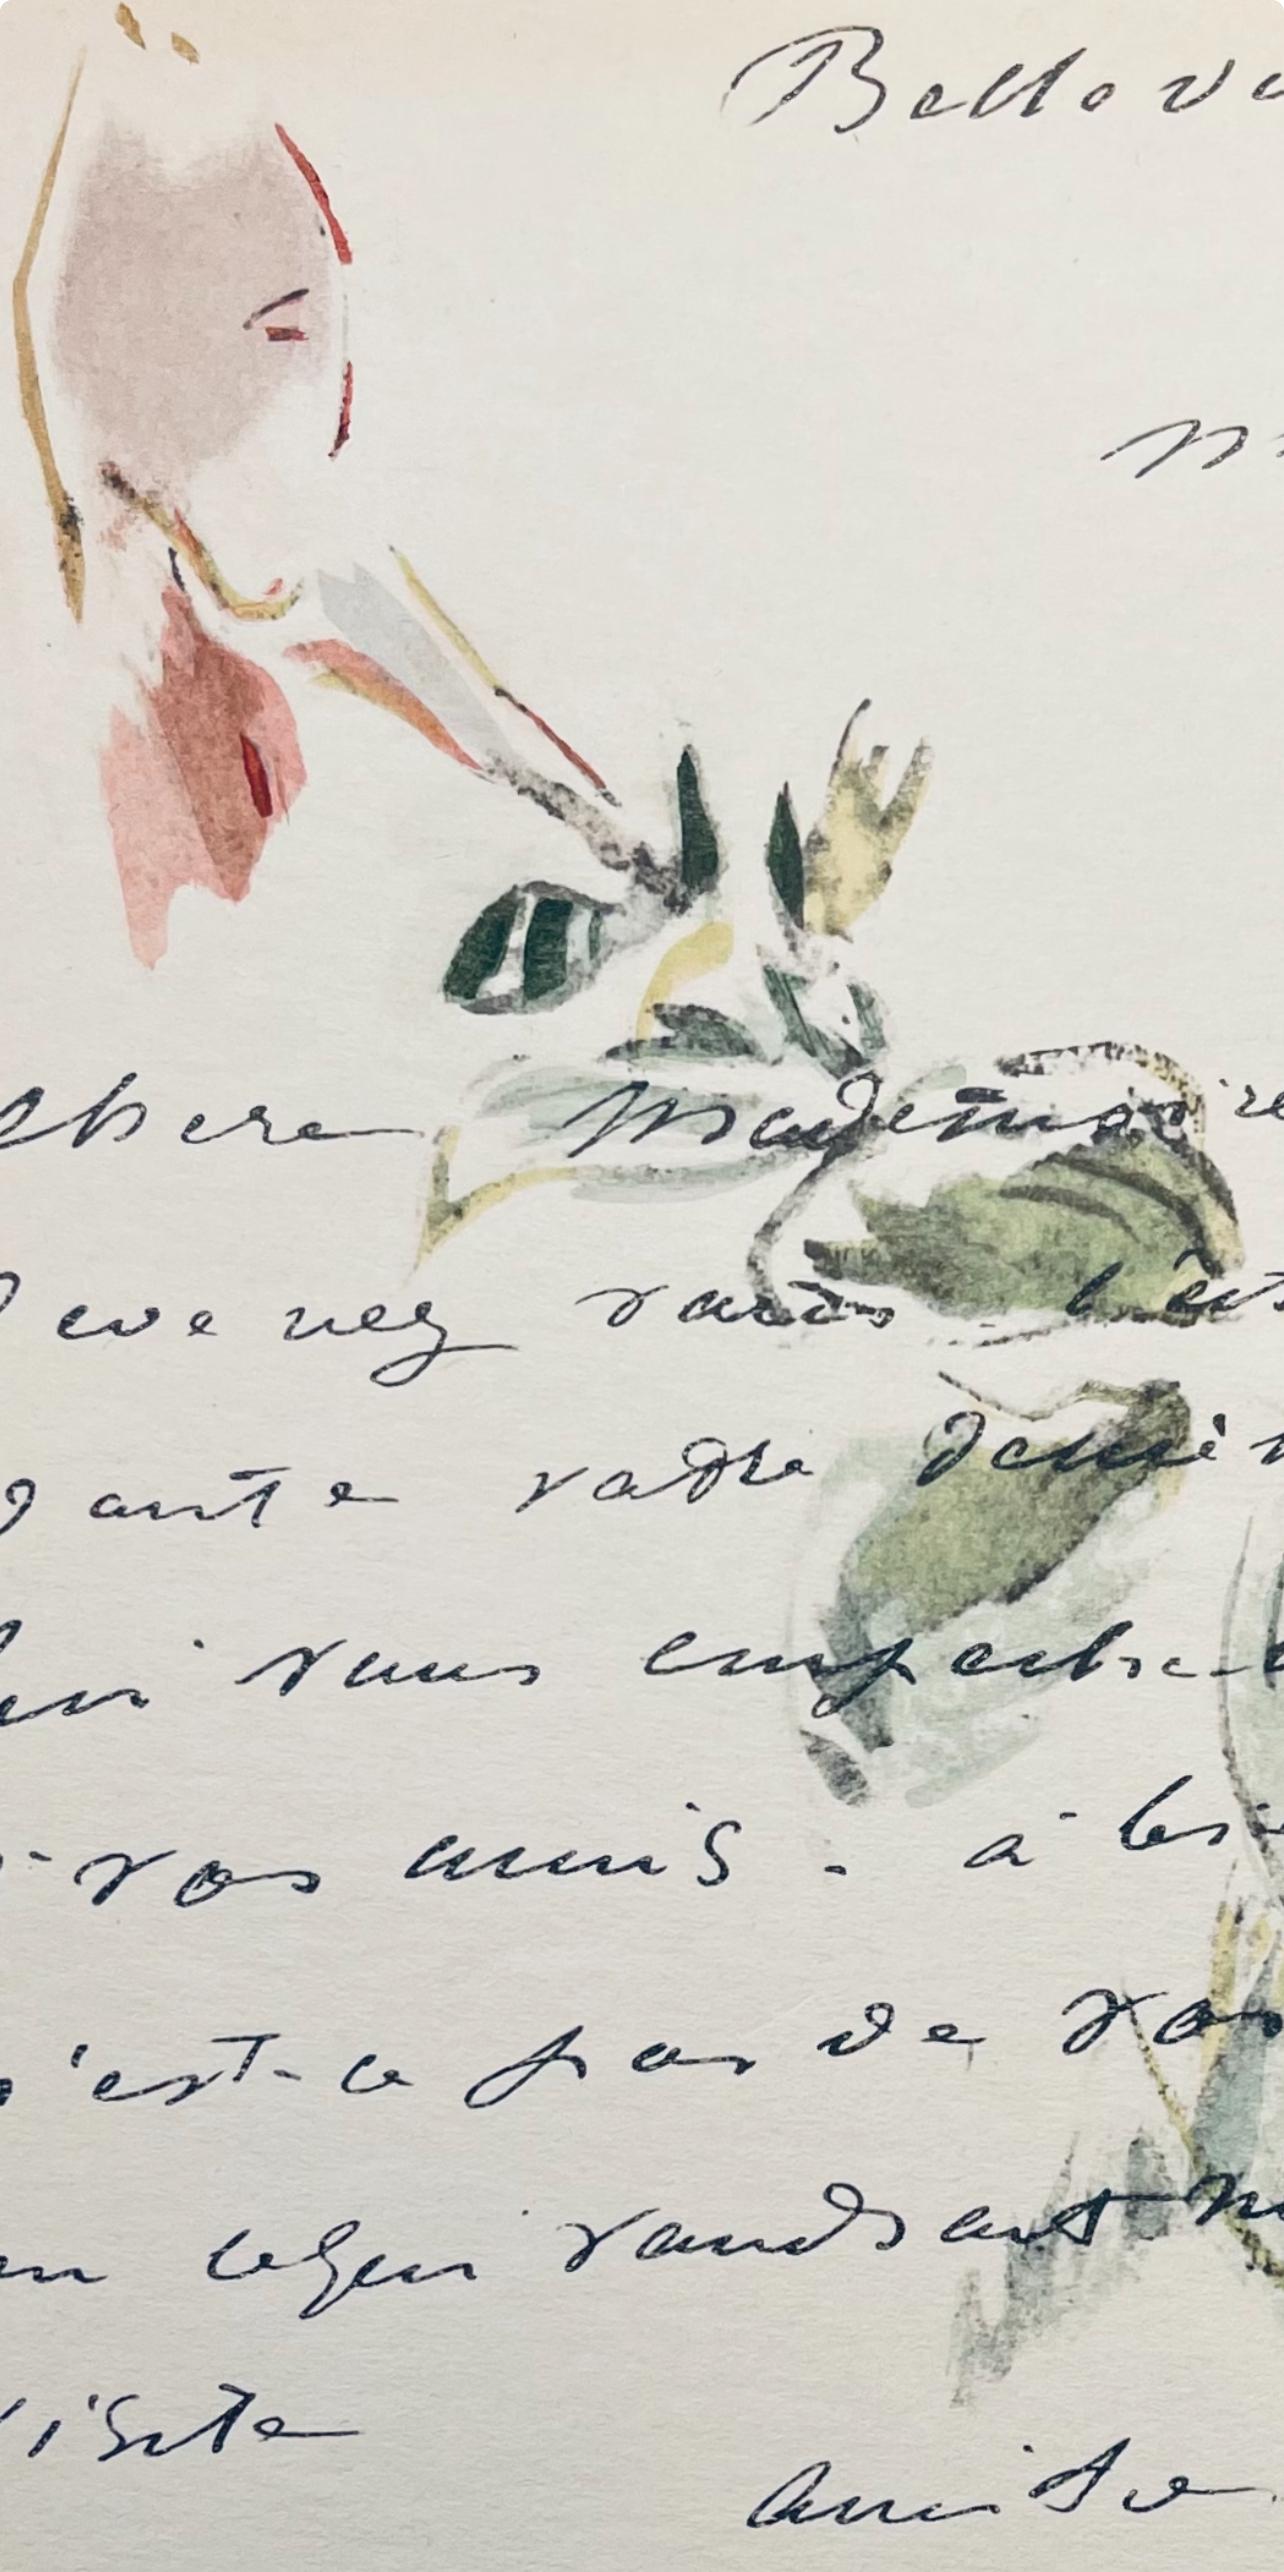 Bellevu
M
chere Mademoise
devenez vous
vante votre derniè
qui vous empeche
vos amis. à bi
n'est-ce pas de vos
un voudrait
visite
Amitie